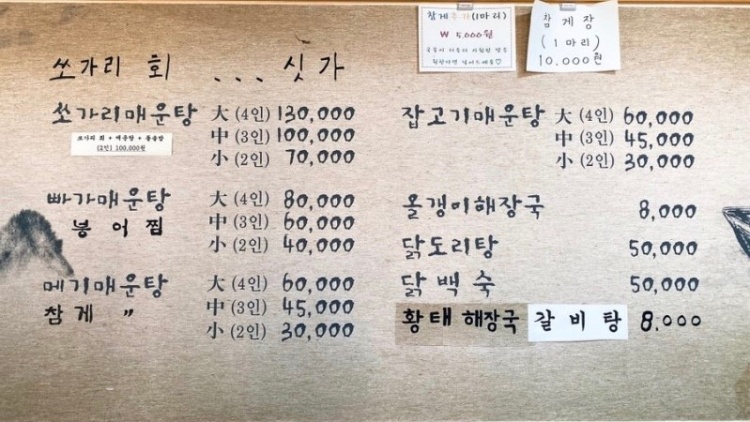 쏘가리 회 ... 싯가
쏘가리매운탕 大 (4인) 130,000
中 (3인) 100,000
小 (2인) 70,000
쏘가리 회 + 매운탕 +
(2인) 100,000원
빠가매운탕 大 (4인) 80,000
붕어찜 中 (3인) 60,000
小 (2인) 40,000
메기매운탕 大 (4인) 60,000
참게 〃 中 (3인) 45,000
小 (2인) 30,000
참게추가(1마리)
₩ 5,000원
참게장
(1마리)
10,000원
잡고기매운탕 大 (4인) 60,000
中 (3인) 45,000
小 (2인) 30,000
올갱이해장국 8,000
닭도리탕 50,000
닭백숙 50,000
황태해장국 갈비탕 8.000